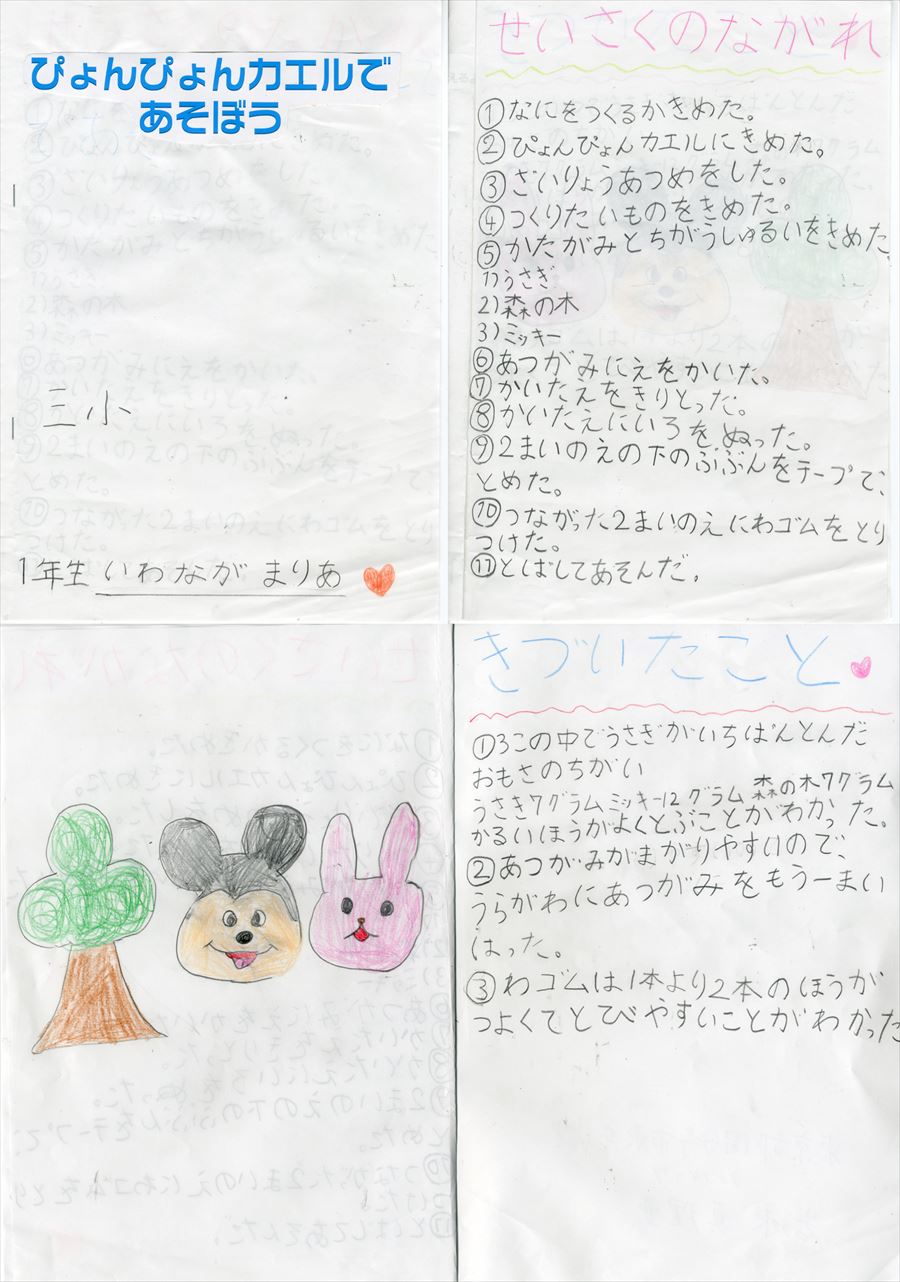 ぴょんぴょんカエルで
あそぼう
三小
1年生 いわなが まりあ
せいさくのながれ
①なにをつくるかきめた。
②ぴょんぴょんカエルにきめた。
③ざいりょうあつめをした。
④つくりたいものをきめた。
⑤かたがみとちがうしゅるいをきめた
1)うさぎ
2)森の木
3)ミッキー
⑥あつがみにえをかいた。
⑦かいたえをきりとった。
⑧かいたえにいろをぬった。
⑨2まいのえの下のぶぶんをテープで、
とめた。
⑩つながった2まいのえにわゴムをとり
つけた。
⑪とばしてあそんだ。
きづいたこと
①3この中でうさぎがいちばんとんだ
おもさのちがい
うさき7グラムミッキー12グラム 森の木7グラム
かるいほうがよくとぶことがわかった。
②あつがみがまがりやすいので、
うらがわにあつがみをもう一まい
はった。
③わゴムは1本より2本のほうが
つよくてとびやすいことがわかった